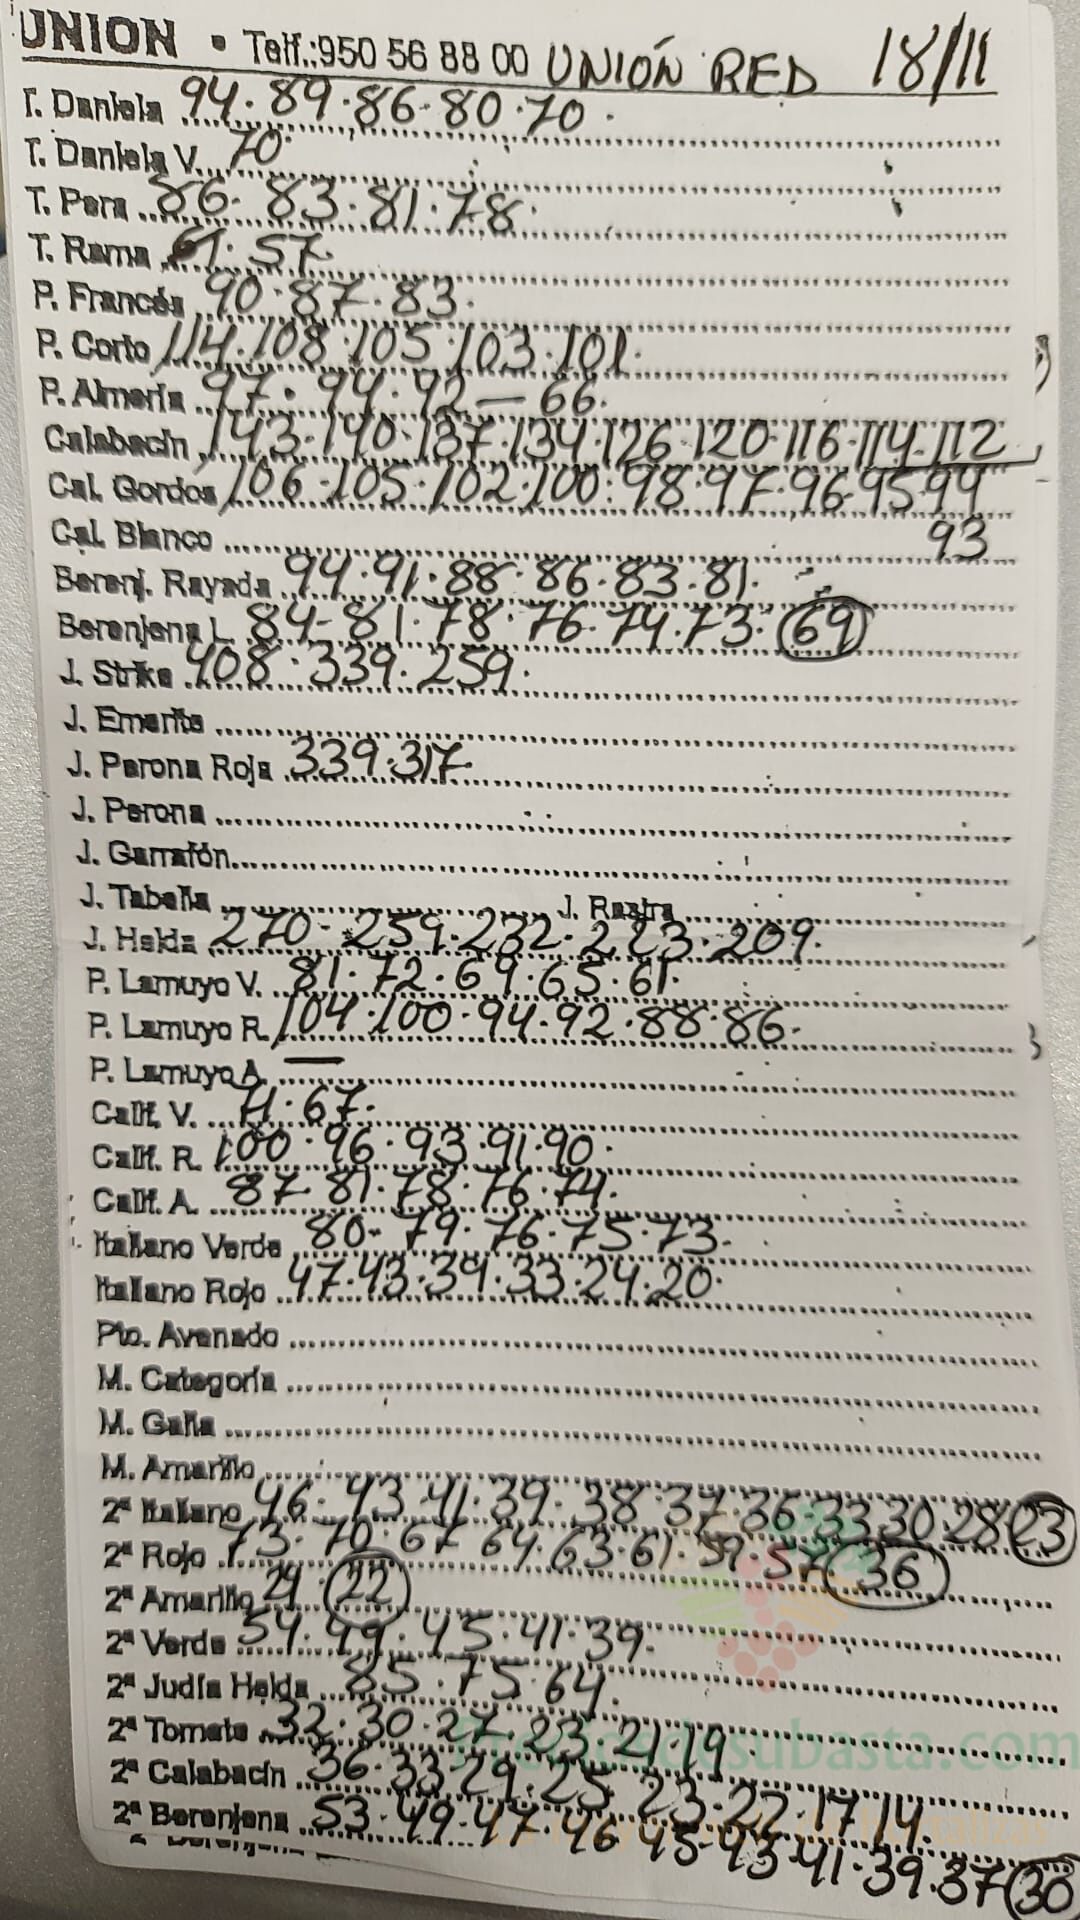 UNION • Telf.:950 56 88 00 UNIÓN RED 18/11
T. Daniela 94·89·86·80·70·
T. Daniela V. 70·
T. Pera 86·83·81·78·
T. Rama 61·57·
P. Francés 90·87·83·
P. Corto 114·108·105·103·101·
P. Almería 97·94·92—66·
Calabacín 143·140·137·134·126·120·116·114·112
Cal. Gordos 106·105·102·100·98·97·96·95·94
Cal. Blanco 93
Berenj. Rayada 94·91·88·86·83·81·
Berenjena L. 84·81·78·76·74·73·69
J. Strike 408·339·259·
J. Emerite
J. Perona Roja 339·317·
J. Perona
J. Garrafón
J. Tabella J. Rastra
J. Helda 270·259·232·223·209·
P. Lamuyo V. 81·72·69·65·61·
P. Lamuyo R. 104·100·94·92·88·86·
P. Lamuyo A. —
Calif. V. 71·67·
Calif. R. 100·96·93·91·90·
Calif. A. 87·81·78·76·74·
Italiano Verde 80·79·76·75·73·
Italiano Rojo 47·43·39·33·24·20·
Pto. Avenado
M. Categoría
M. Galia
M. Amarillo
2ª Italiano 46·43·41·39·38·37·36·33·30·28·23
2ª Rojo 73·70·67·64·63·61·59·57·36
2ª Amarillo 29·22
2ª Verde 54·49·45·41·39·
2ª Judía Helda 85·75·64·
2ª Tomate 32·30·27·23·21·19·
2ª Calabacín 36·33·29·25·23·22·17·14·
2ª Berenjena 53·49·47·46·45·43·41·39·37·30